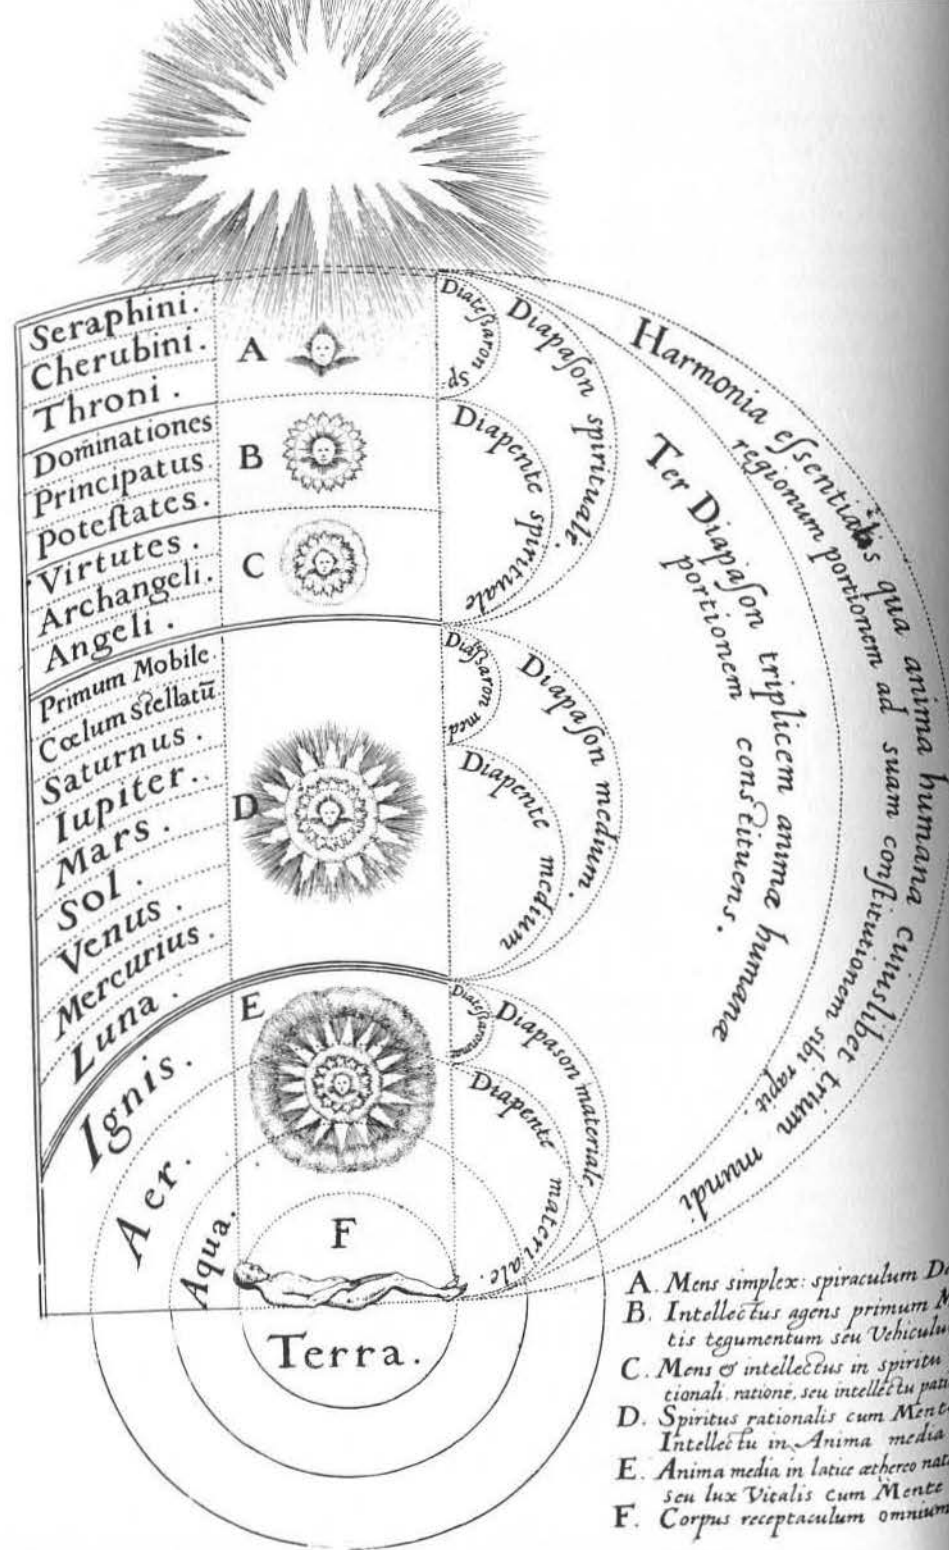 Seraphini.
Cherubini.
Throni.
Dominationes
Principatus.
Poteſtates.
Virtutes.
Archangeli.
Angeli.
Primum Mobile.
Cœlum Stellatū
Saturnus.
Iupiter.
Mars.
Sol.
Venus.
Mercurius.
Luna.
Ignis.
Aer.
Aqua.
Terra.
A
B
C
D
E
F
Diateſsaron sp.
Diapaſon spirituale.
Diapente spirituale
med.
Diapaſon medium.
Diapente medium
Diapason materiale
Diapente materiale.
Ter Diapaſon triplicem animæ humanæ
portionem constituens.
Harmonia eſsentialis qua anima humana cuiuslibet trium mundi
regionum portionem ad suam conſtitutionem sibi rapit.
A. Mens simplex: spiraculum
B. Intellectus agens primum
tis tegumentum seu
C. Mens & intellectus in
tionali, ratione, seu intellectu
D. Spiritus rationalis cum
Intellectu in Anima media
E. Anima media in latice æthereo
seu lux Vitalis cum Mente
F. Corpus receptaculum omnium